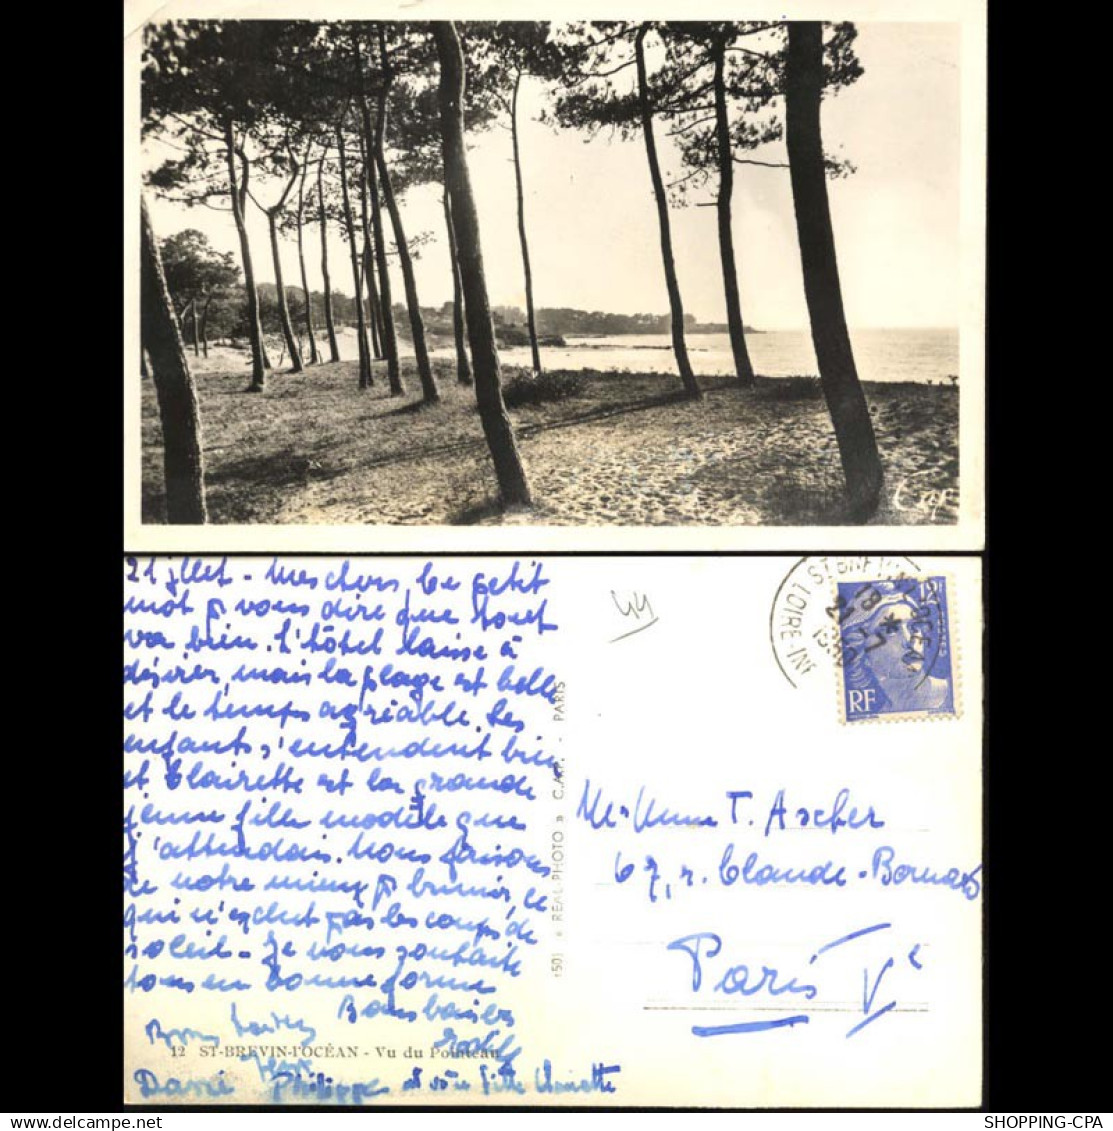 Cap
21 jllet - Mes chers, Ce petit
mot pr vous dire que tout
va bien. L'hôtel laisse à
désirer, mais la plage est belle
et le temps agréable. Les
enfants s'entendent bien
et Clairette est la grande
jeune fille modèle que
j'attendais. Nous faisons
de notre mieux pr brunir, ce
qui n'exclut pas les coups de
soleil - Je vous souhaite
tous en bonne forme
Bons baisers
Bons
12 ST-BREVIN-l'OCÉAN - Vu du Pointeau
Philippe et vôtre fille Clairette
(50) « REAL-PHOTO » C.A.P. - PARIS
44
ST BREVIN L'OCEAN
LOIRE-INF
18 *
21 -7
1950
12F
RF
Mr Mme T. Ascher
67, r. Claude-Bernard
Paris Ve
SHOPPING-CPA